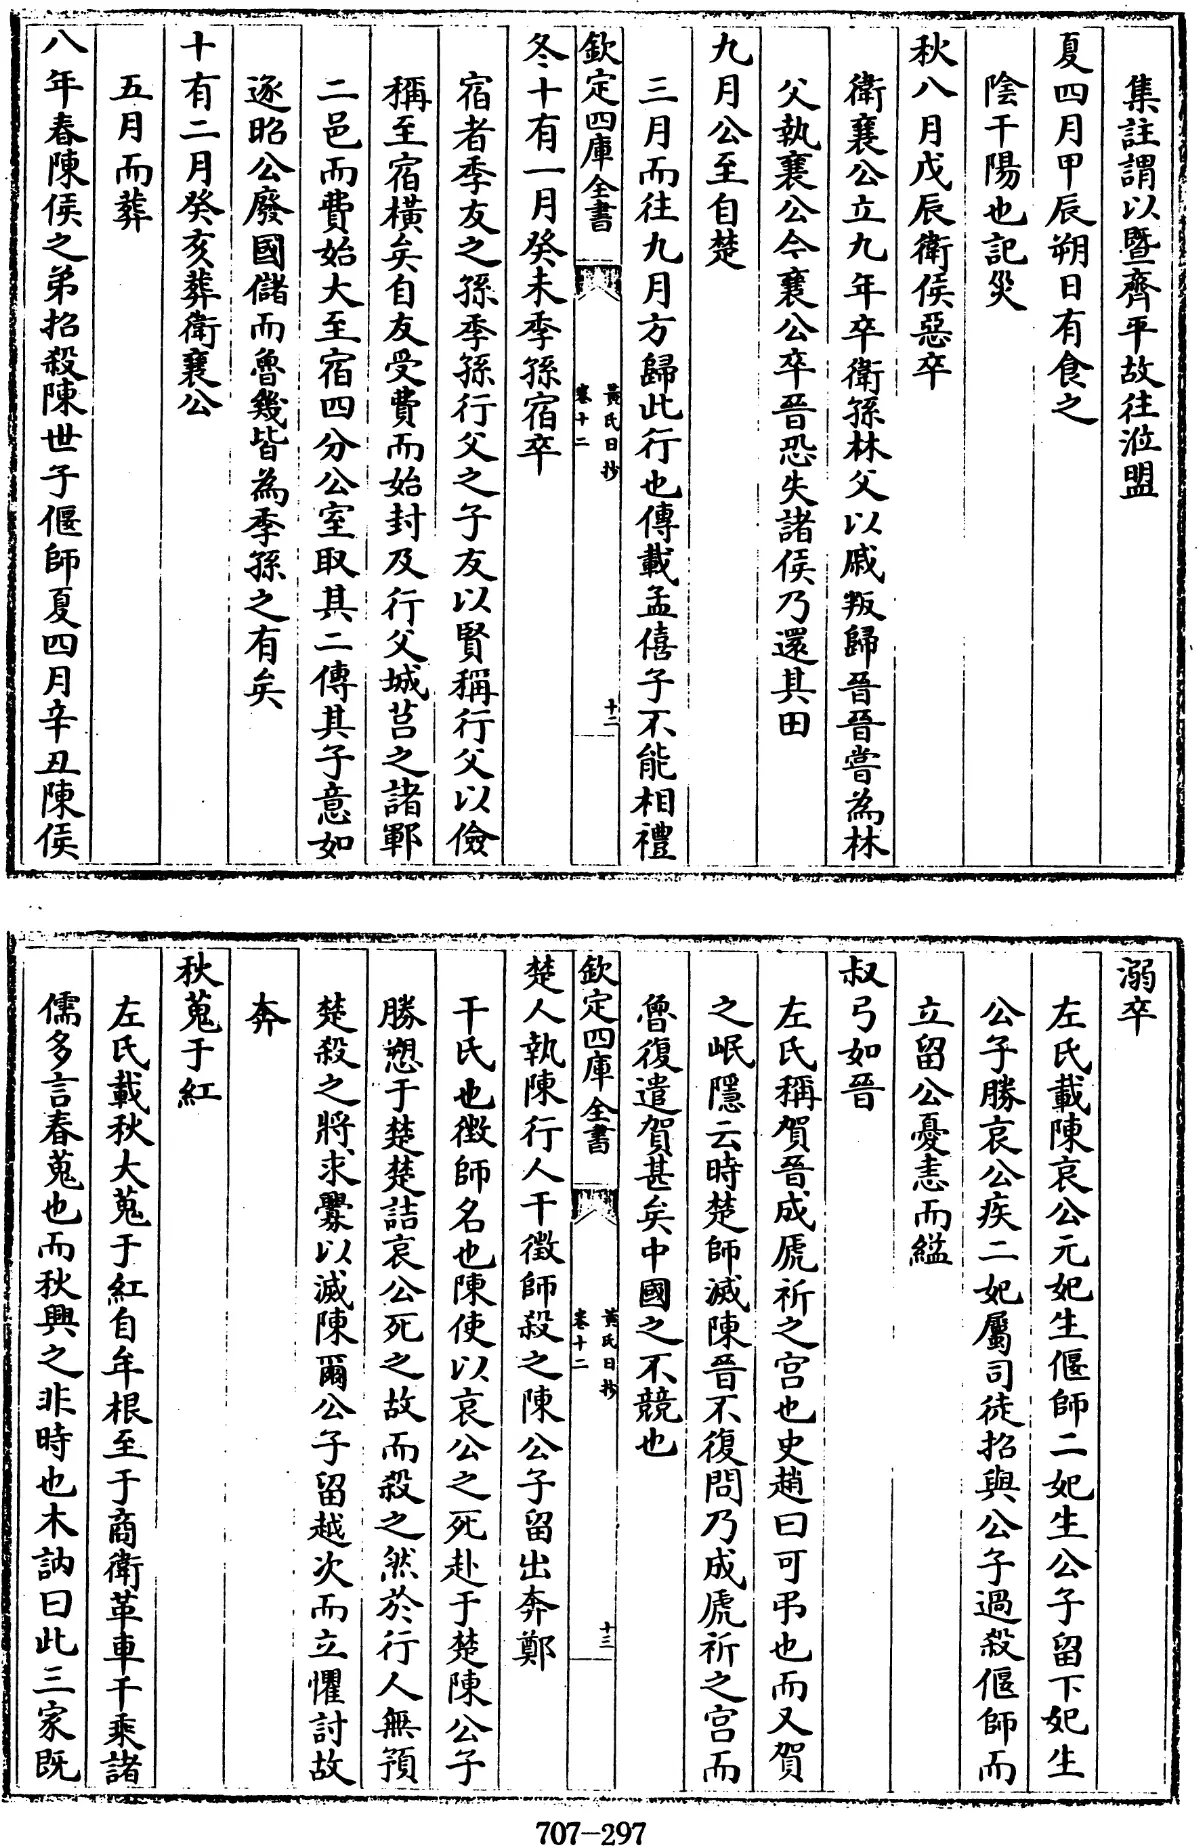 集註謂以暨齊平故往涖盟
夏四月甲辰朔日有食之
陰干陽也記災
秋八月戊辰衛侯惡卒
衛襄公立九年卒衛孫林父以戚叛歸晉晉嘗為林
父執襄公今襄公卒晉恐失諸侯乃還其田
九月公至自楚
三月而往九月方歸此行也傳載孟僖子不能相禮
欽定四庫全書
黃氏日抄
卷十二
十二
冬十有一月癸未季孫宿卒
宿者季友之孫季孫行父之子友以賢稱行父以儉
稱至宿橫矣自友受費而始封及行父城莒之諸鄆
二邑而費始大至宿四分公室取其二傳其子意如
逐昭公廢國儲而魯幾皆為季孫之有矣
十有二月癸亥葬衛襄公
五月而葬
八年春陳侯之弟招殺陳世子偃師夏四月辛丑陳侯
溺卒
左氏載陳哀公元妃生偃師二妃生公子留下妃生
公子勝哀公疾二妃屬司徒招與公子過殺偃師而
立留公憂恚而縊
叔弓如晉
左氏稱賀晉成虒祈之宮也史趙曰可弔也而又賀
之岷隱云時楚師滅陳晉不復問乃成虒祈之宮而
魯復遣賀甚矣中國之不競也
欽定四庫全書
黃氏日抄
卷十二
十三
楚人執陳行人干徵師殺之陳公子留出奔鄭
干氏也徵師名也陳使以哀公之死赴于楚陳公子
勝愬于楚楚詰哀公死之故而殺之然於行人無預
楚殺之將求釁以滅陳爾公子留越次而立懼討故
奔
秋蒐于紅
左氏載秋大蒐于紅自牟根至于商衛革車千乘諸
儒多言春蒐也而秋興之非時也木訥曰此三家既
707-297